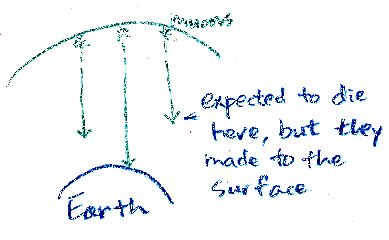 muons
expected to die
here, but they
made to the
surface
Earth